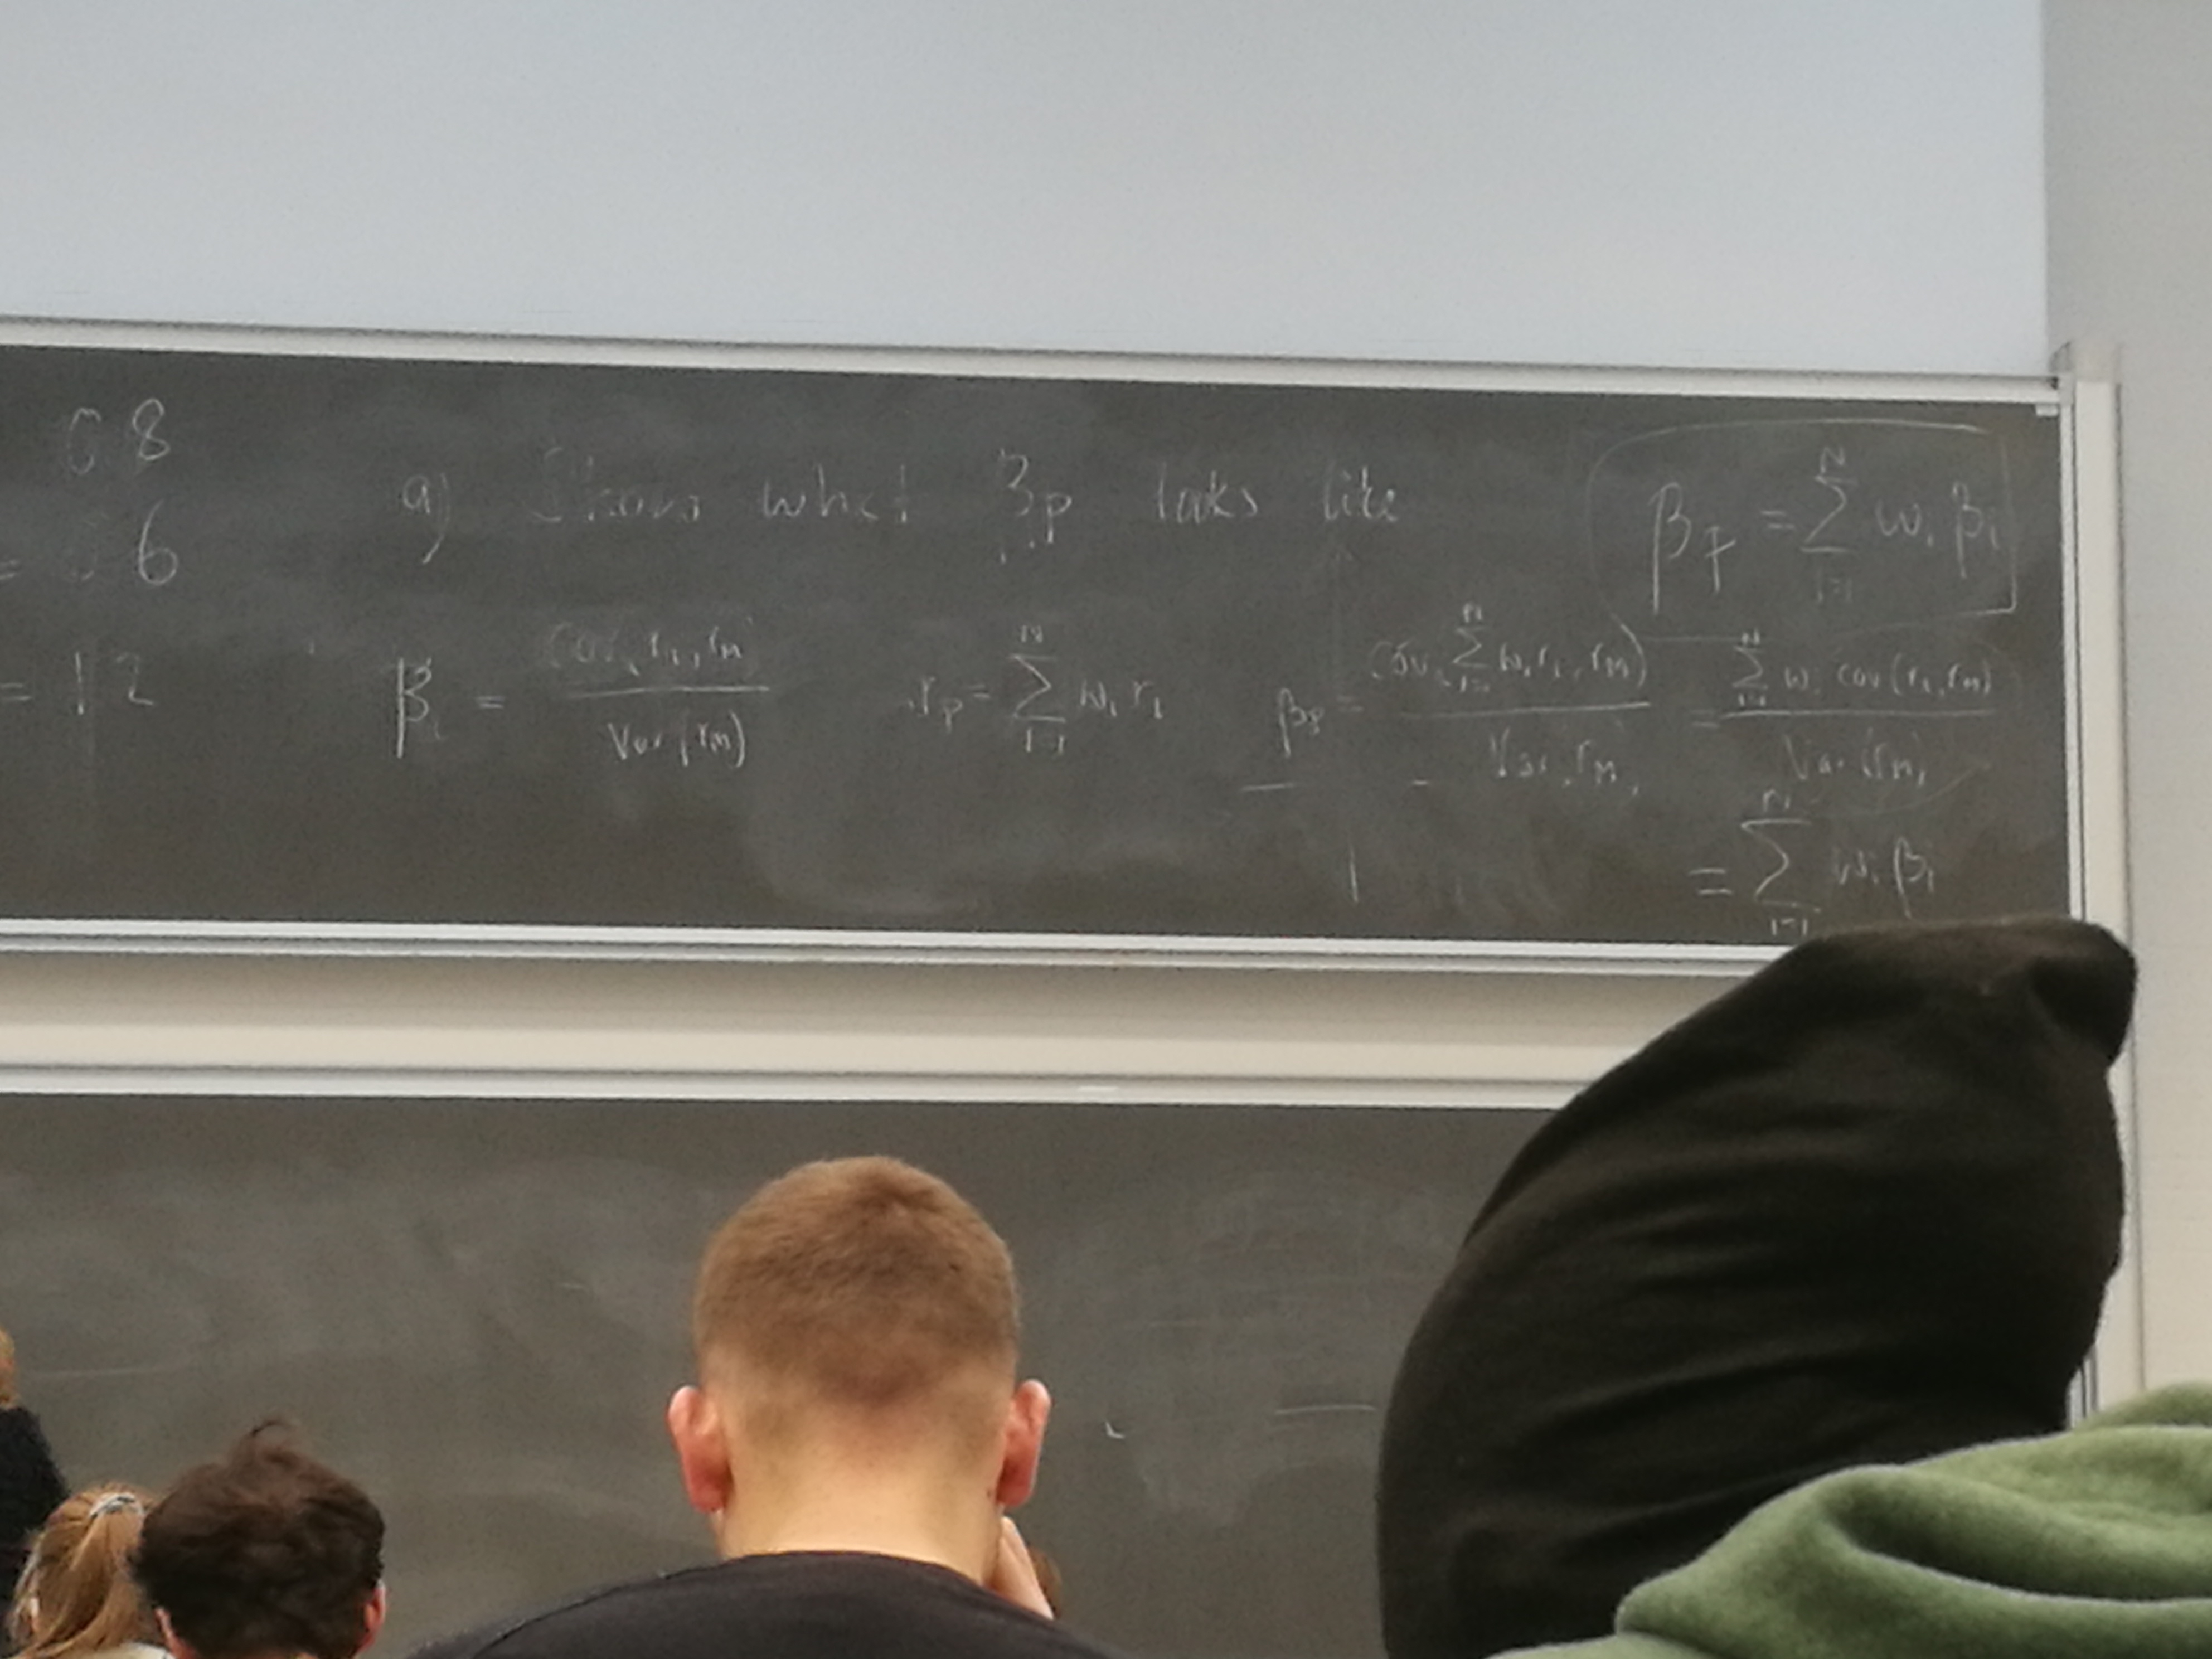 0.8
= 0.6
= 1.2
a) Show what βp looks like
βp = Σ_{i=1}^{N} wi βi
βi = Cov(ri, rm) / Var(rm)
rp = Σ_{i=1}^{N} wi ri
βp = Cov(Σ_{i=1}^{N} wi ri, rm) / Var(rm) = Σ_{i=1}^{N} wi cov(ri, rm) / Var(rm)
= Σ_{i=1}^{N} wi βi